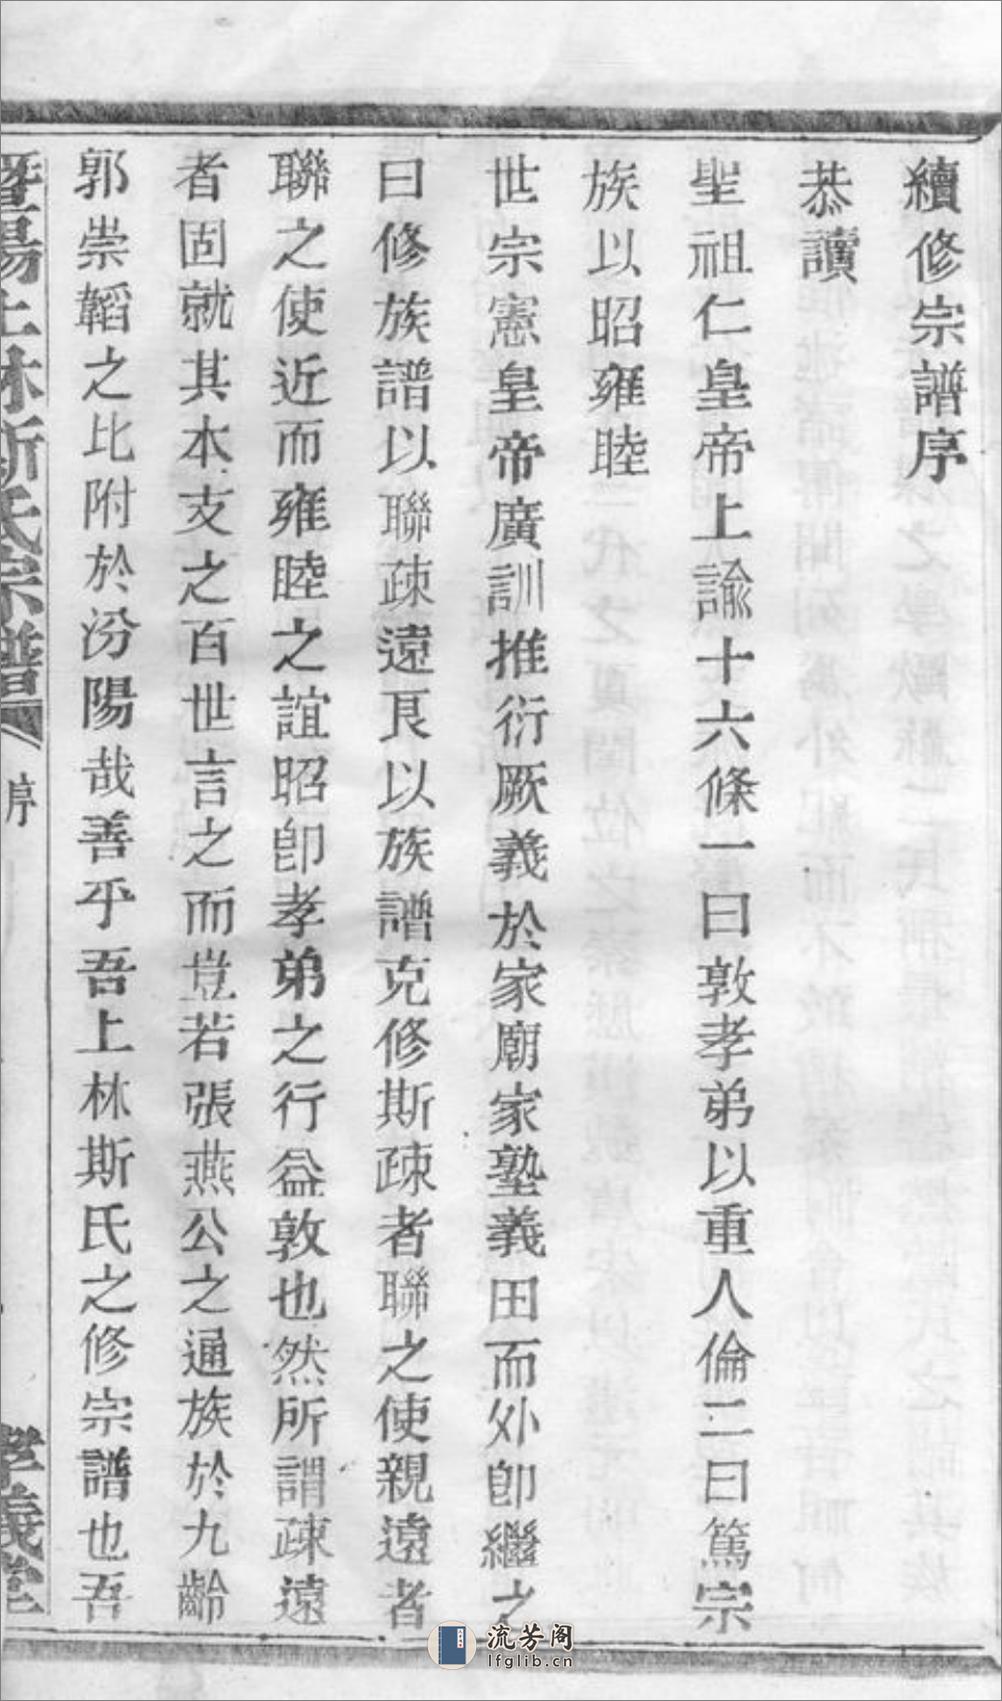 續修宗譜序
恭讀
聖祖仁皇帝上諭十六條一曰敦孝弟以重人倫二曰篤宗
族以昭雍睦
世宗憲皇帝廣訓推衍厥義於家廟家塾義田而外卽繼之
曰修族譜以聯疎遠良以族譜克修斯疎者聯之使親遠者
聯之使近而雍睦之誼昭卽孝弟之行益敦也然所謂疎遠
者固就其本支之百世言之而豈若張燕公之通族於九齡
郭崇韜之比附於汾陽哉善乎吾上林斯氏之修宗譜也吾
暨陽上林斯氏宗譜
序
孝義堂
流芳阁
lfglib.cn